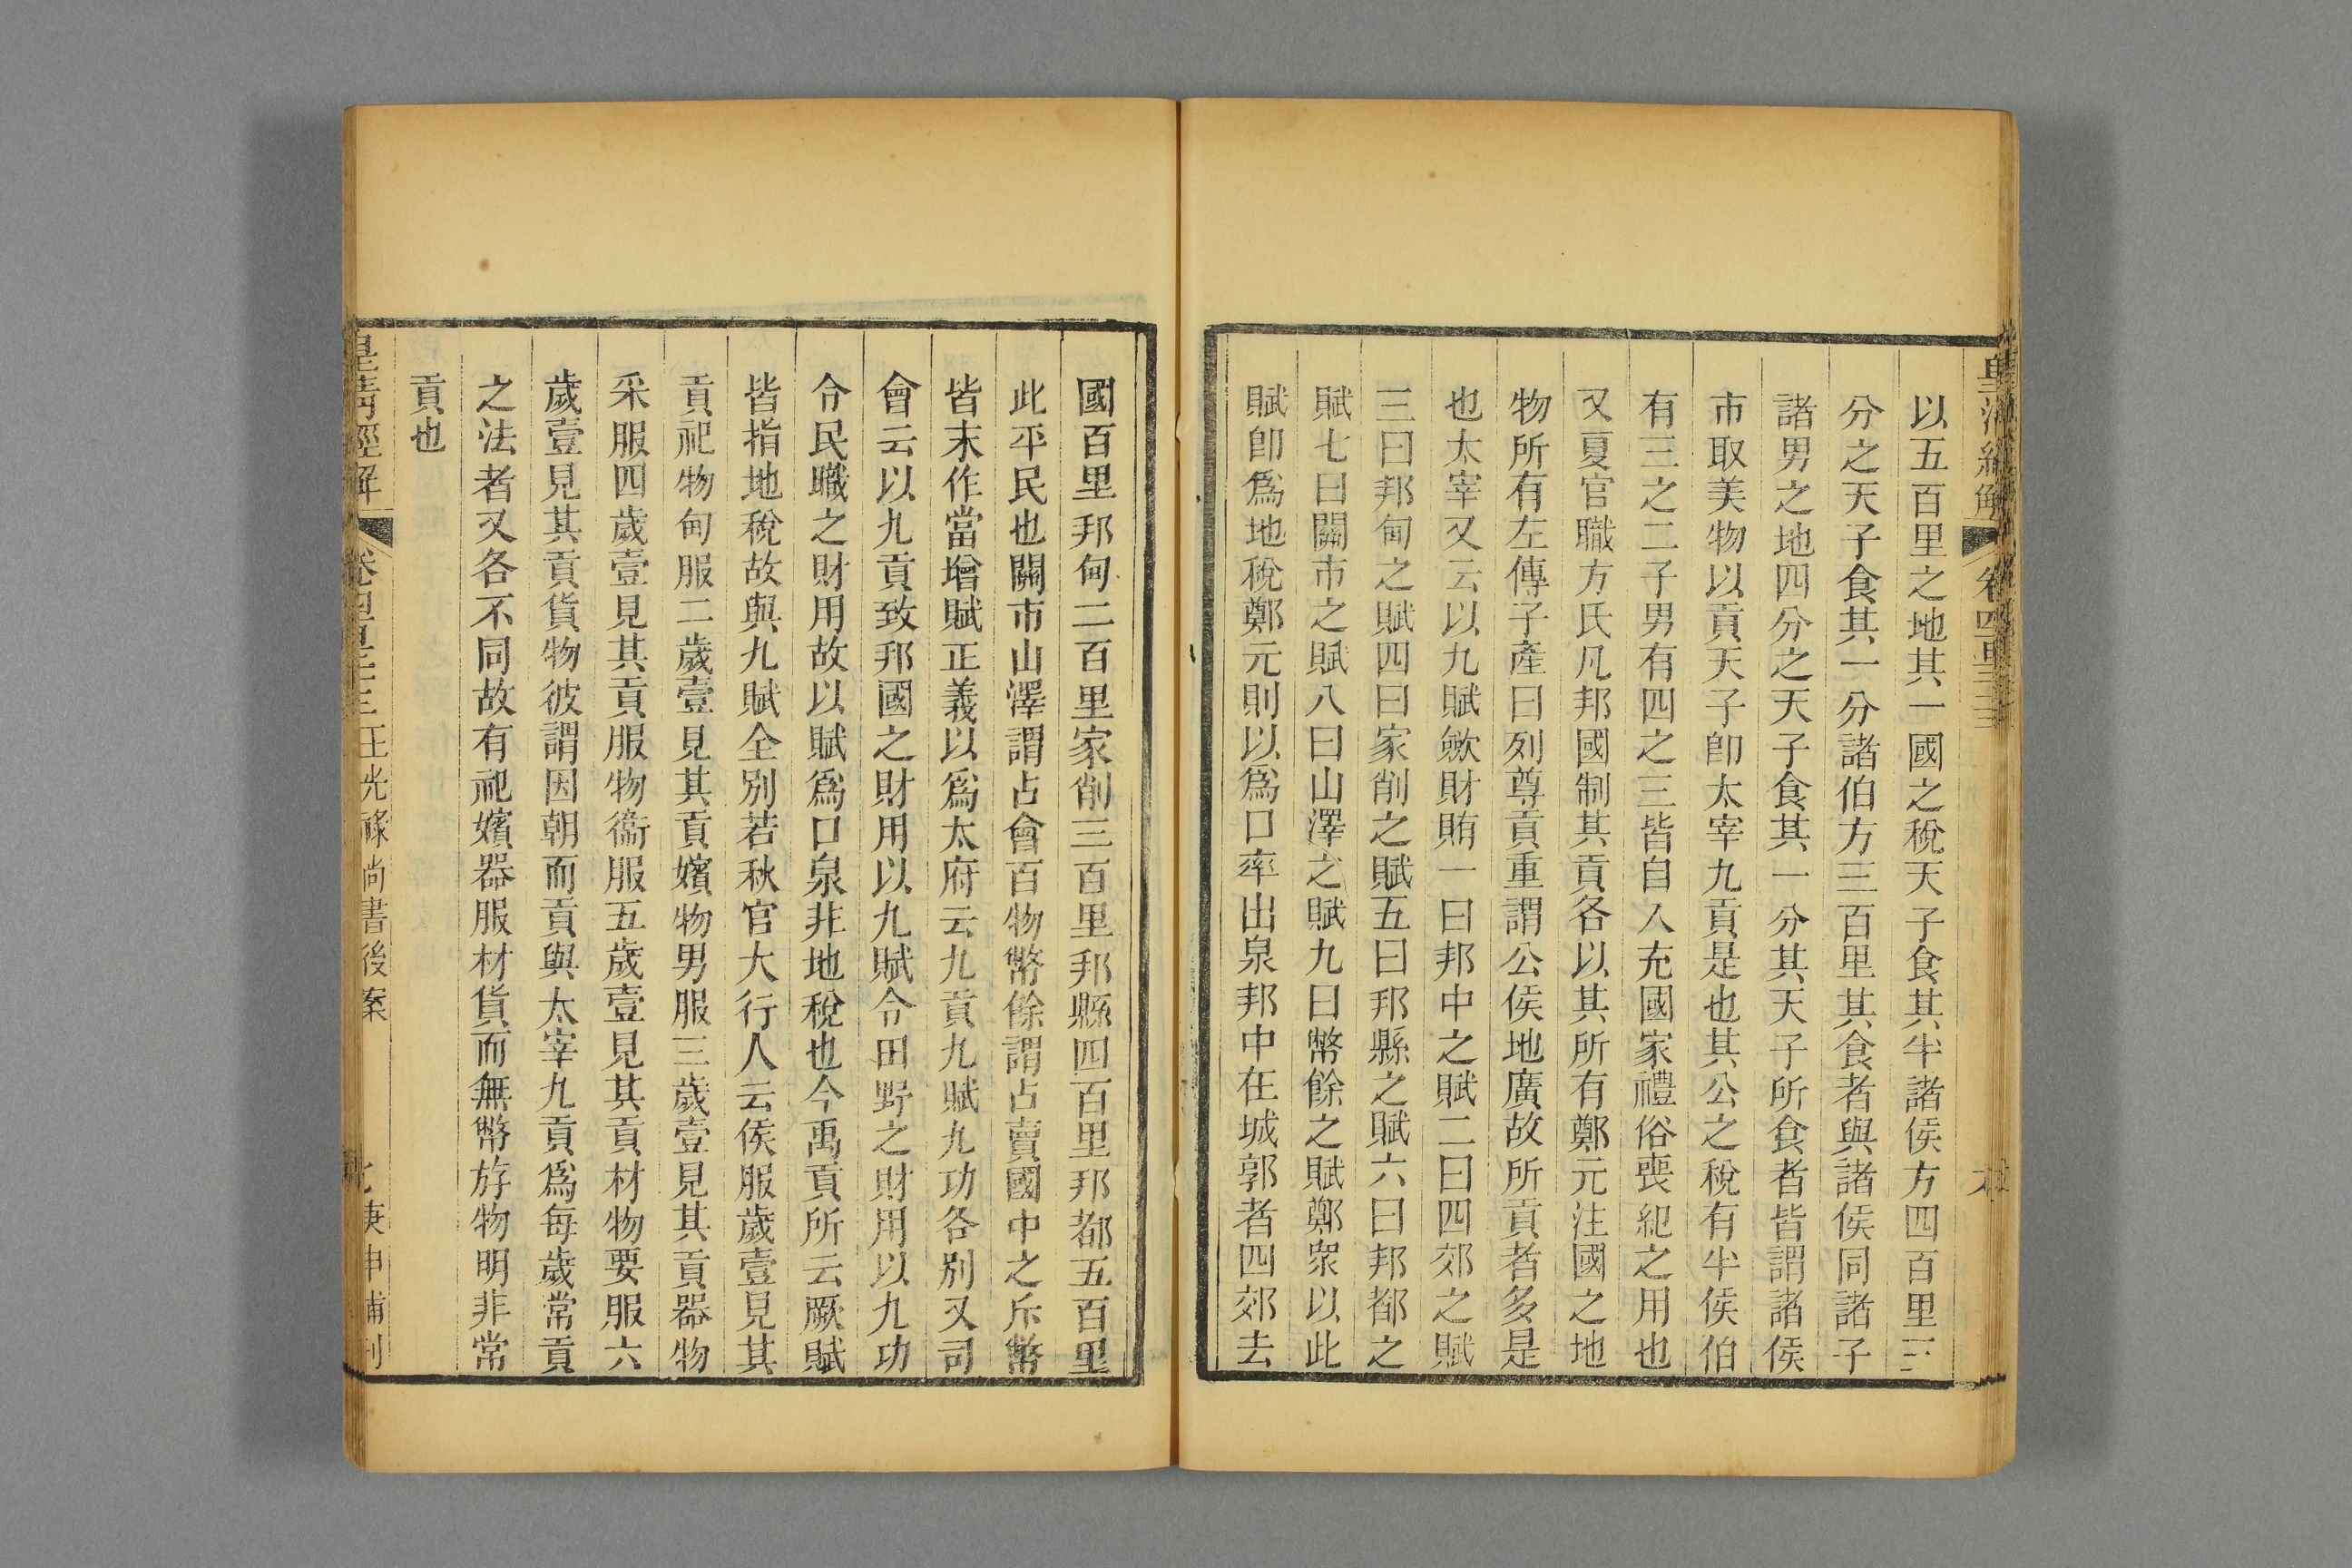 以五百里之地其一國之稅天子食其半諸侯方四百里三
分之天子食其一分諸伯方三百里其食者與諸侯同諸子
諸男之地四分之天子食其一分其天子所食者皆謂諸侯
市取美物以貢天子卽太宰九貢是也其公之稅有半侯伯
有三之二子男有四之三皆自入充國家禮俗喪紀之用也
又夏官職方氏凡邦國制其貢各以其所有鄭元注國之地
物所有左傳子產曰列尊貢重謂公侯地廣故所貢者多是
也太宰又云以九賦斂財賄一曰邦中之賦二曰四郊之賦
三曰邦甸之賦四曰家削之賦五曰邦縣之賦六曰邦都之
賦七曰關市之賦八曰山澤之賦九曰幣餘之賦鄭衆以此
賦卽爲地稅鄭元則以爲口率出泉邦中在城郭者四郊去
國百里邦甸二百里家削三百里邦縣四百里邦都五百里
此平民也關市山澤謂占會百物幣餘謂占賣國中之斥幣
皆末作當增賦正義以爲太府云九貢九賦九功各別又司
會云以九貢致邦國之財用以九賦令田野之財用以九功
令民職之財用故以賦爲口泉非地稅也今禹貢所云厥賦
皆指地稅故與九賦全別若秋官大行人云侯服歲壹見其
貢祀物甸服二歲壹見其貢嬪物男服三歲壹見其貢器物
采服四歲壹見其貢服物衞服五歲壹見其貢材物要服六
歲壹見其貢貨物彼謂因朝而貢與太宰九貢爲每歲常貢
之法者又各不同故有祀嬪器服材貨而無幣斿物明非常
貢也
皇清經解 卷四百三 王光祿尚書後案 庚申補刊